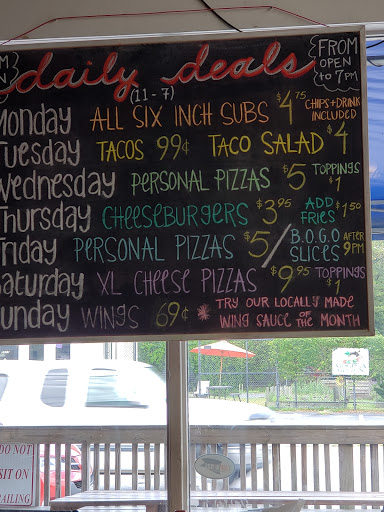 daily deals
(11 - 7)
FROM
OPEN
to 7PM
onday ALL SIX INCH SUBS $4.75 CHIPS + DRINK INCLUDED
uesday TACOS 99¢ TACO SALAD $4
ednesday PERSONAL PIZZAS $5 TOPPINGS $1
hursday CHEESEBURGERS $3.95 ADD FRIES $1.50
riday PERSONAL PIZZAS $5/ B.O.G.O SLICES AFTER 9PM
aturday XL CHEESE PIZZAS $9.95 TOPPINGS $1
unday WINGS 69¢ * TRY OUR LOCALLY MADE
WING SAUCE OF THE MONTH
DO NOT
SIT ON
RAILING